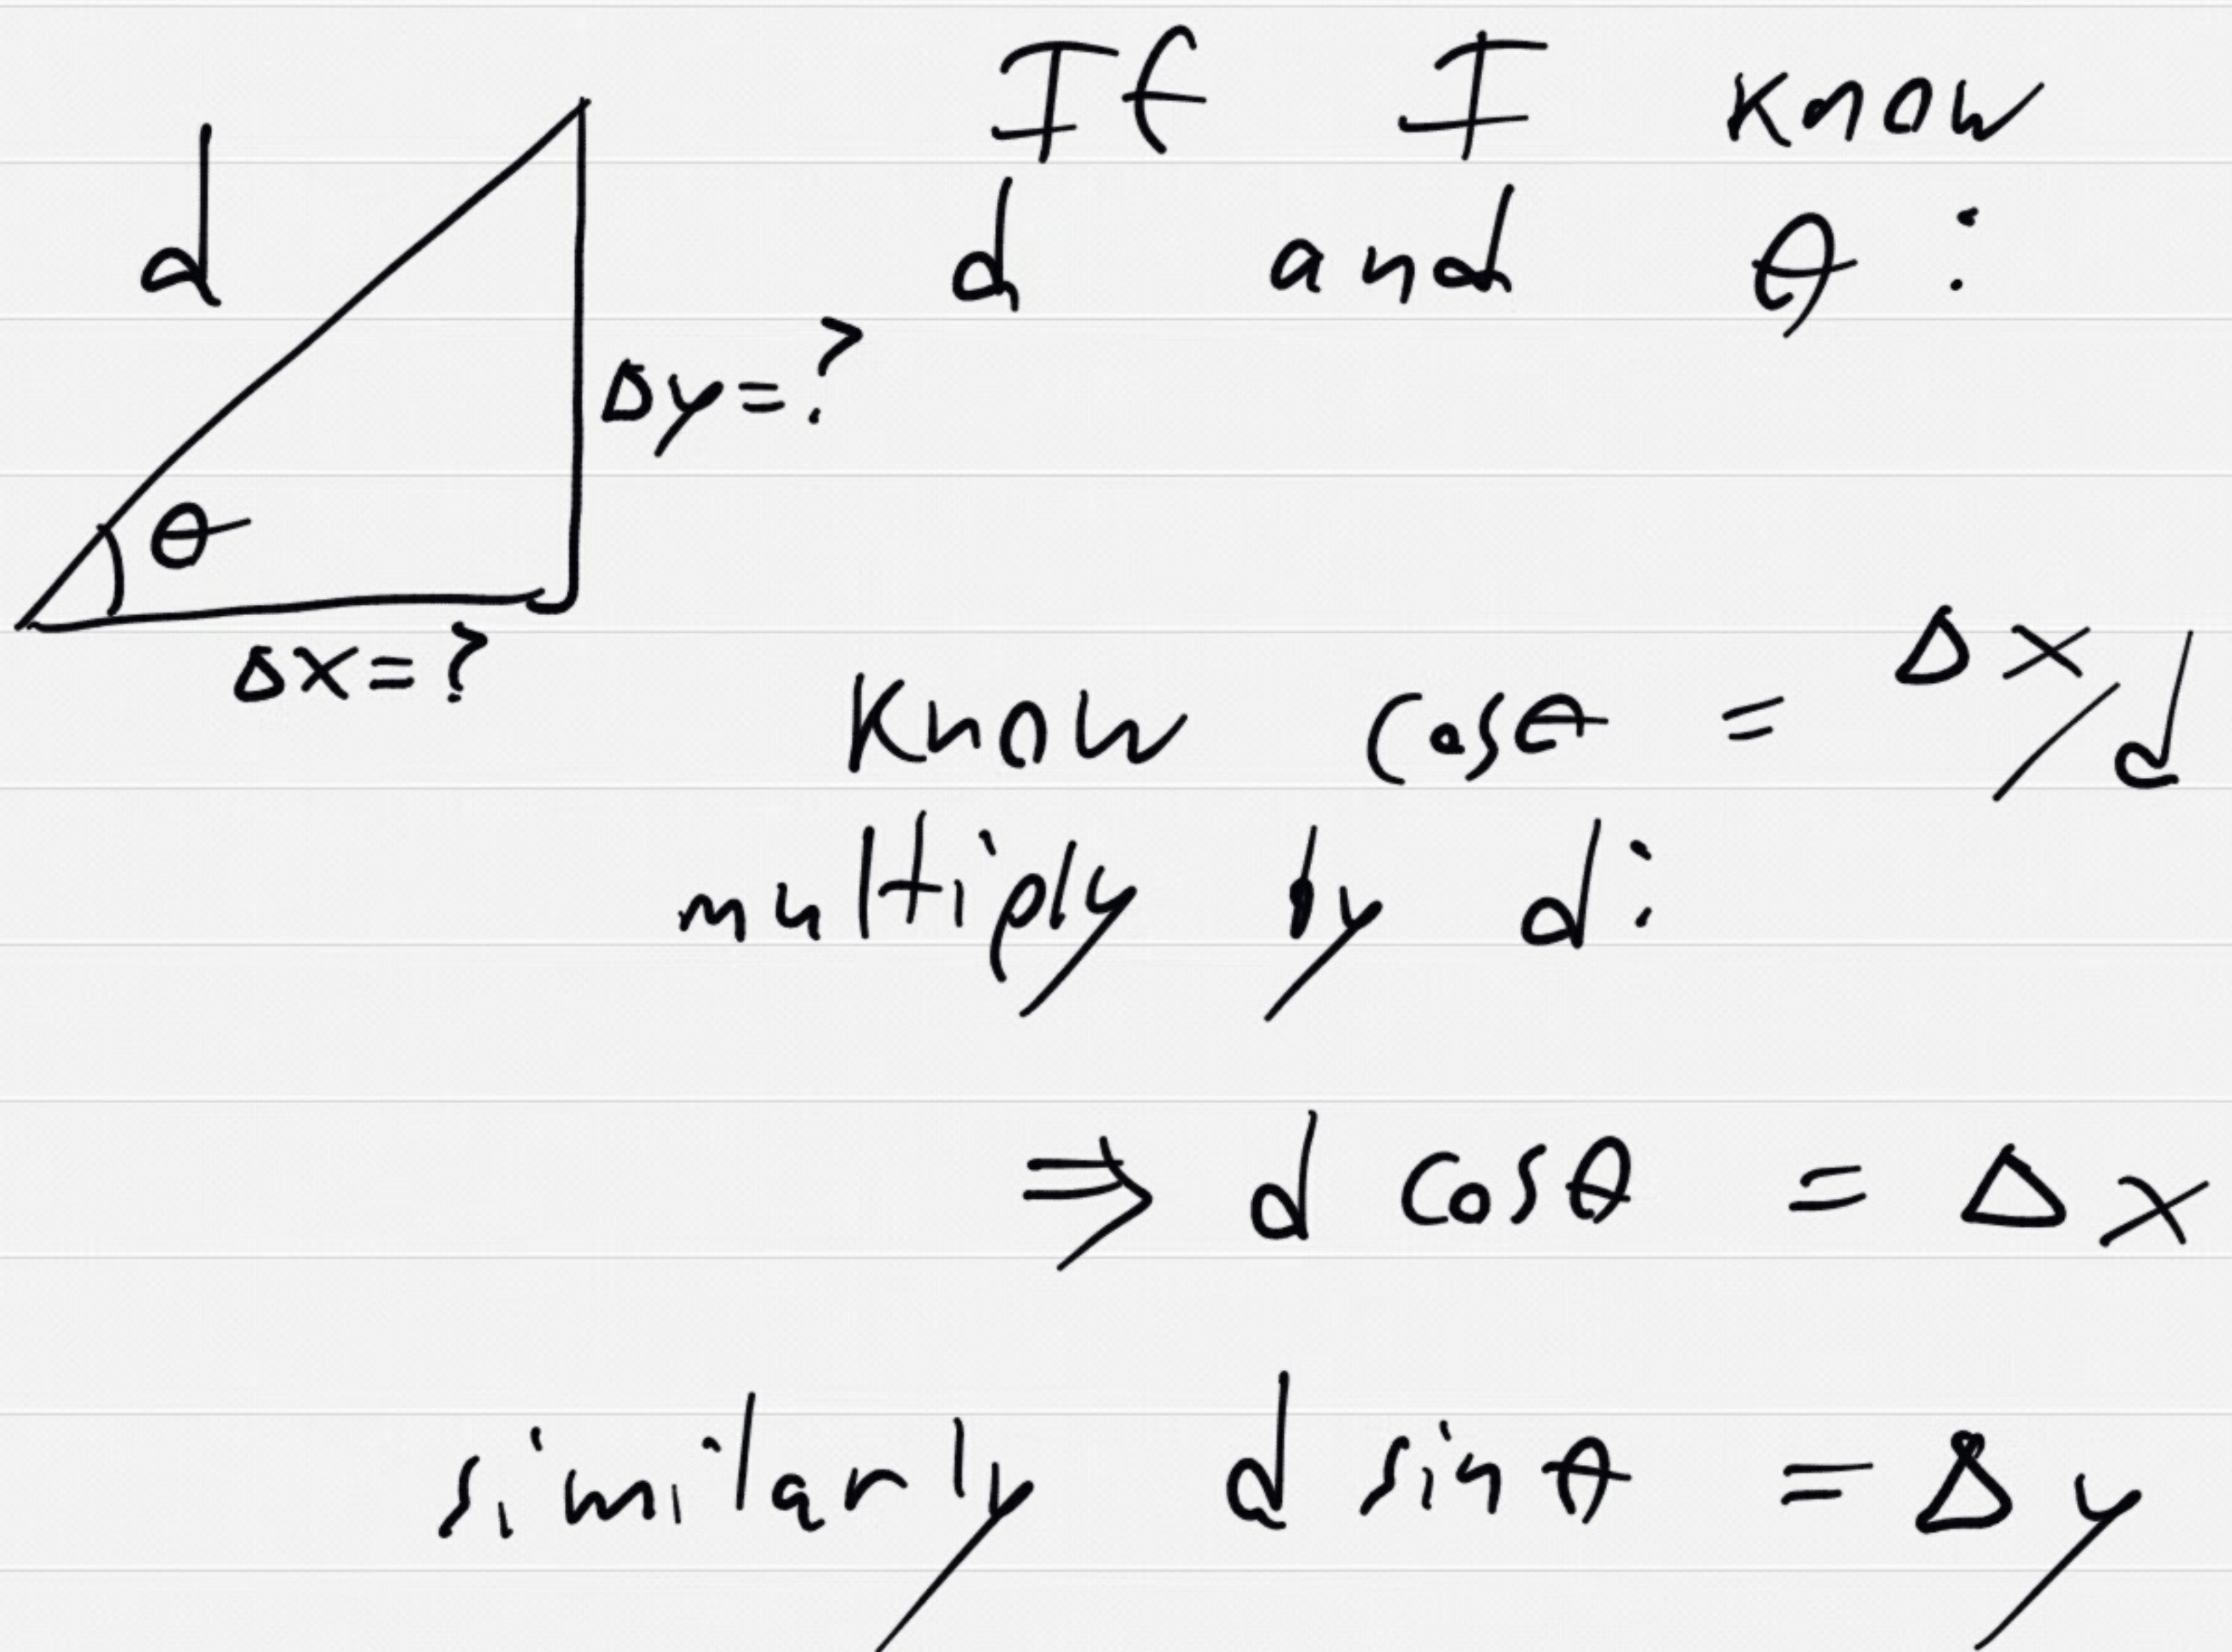 If I know
d and θ:
d
Δy=?
θ
Δx=?
Know cosθ = Δx/d
multiply by d:
⇒ d cosθ = Δx
similarly d sinθ = Δy